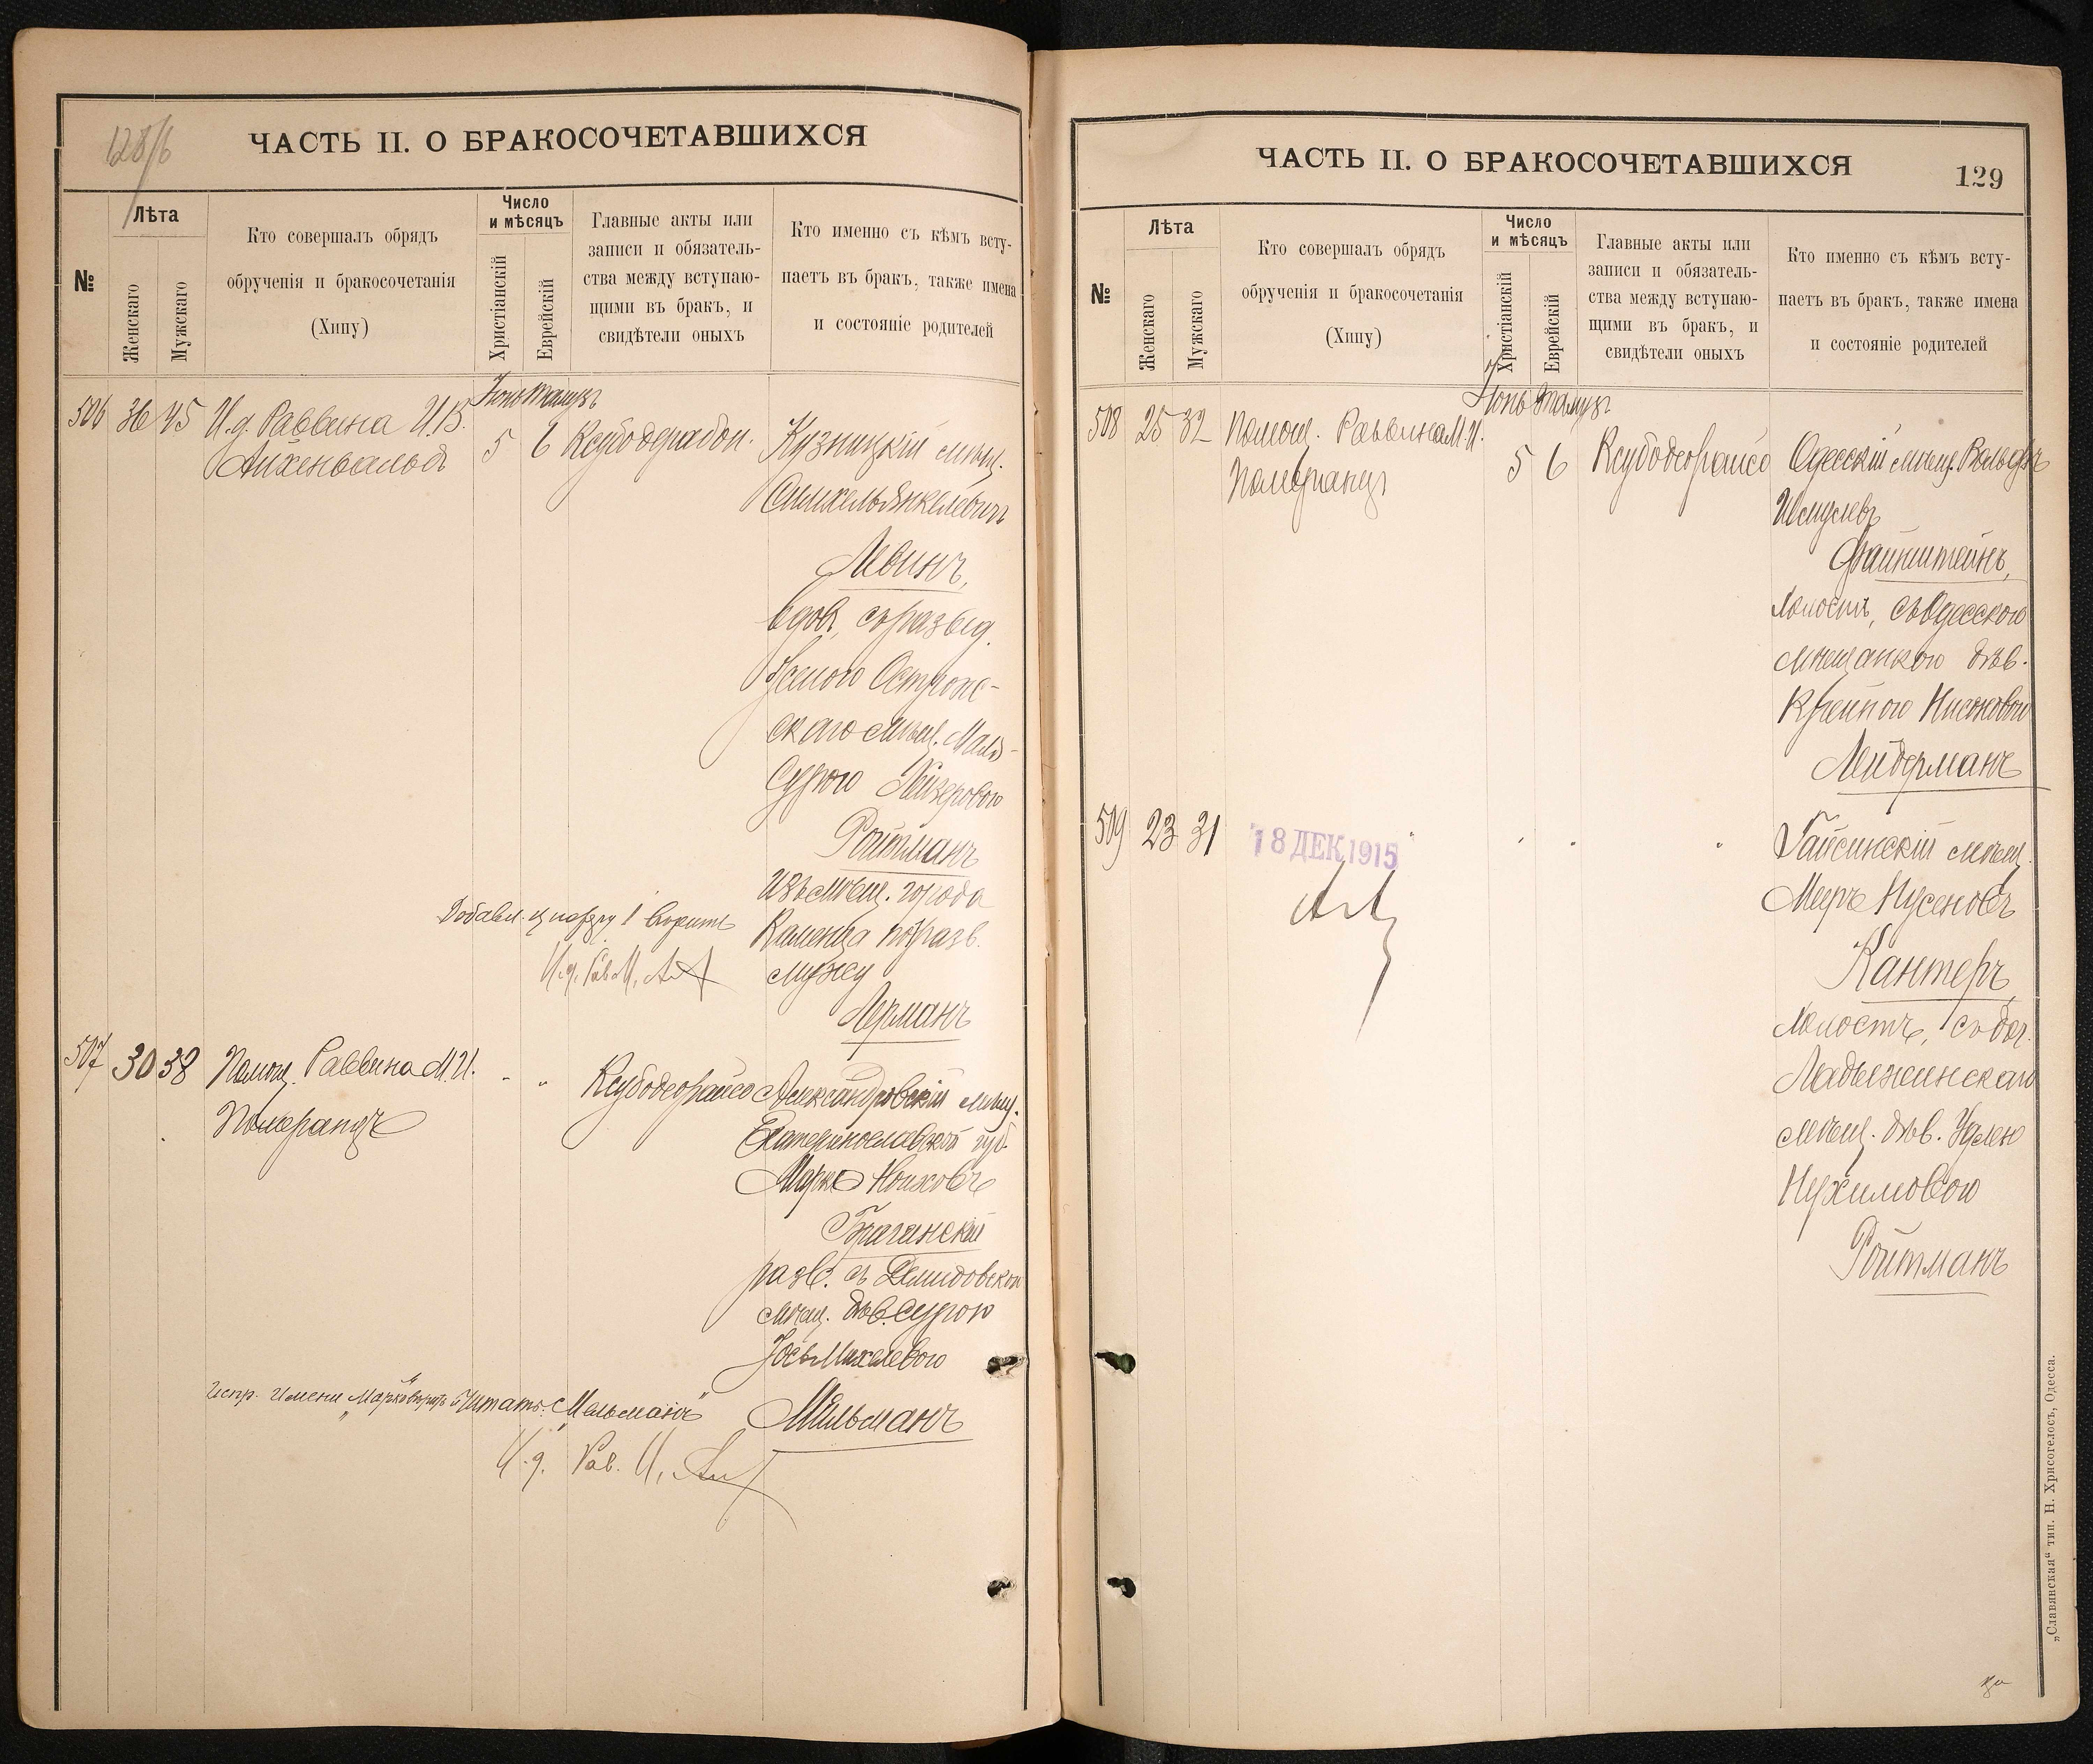 128/б
ЧАСТЬ II. О БРАКОСОЧЕТАВШИХСЯ
№
Лѣта
Женскаго
Мужскаго
Кто совершалъ обрядъ
обрученія и бракосочетанія
(Хипу)
Число
и мѣсяцъ
Христіанскій
Еврейскій
Главные акты или
записи и обязатель-
ства между вступаю-
щими въ бракъ, и
свидѣтели оныхъ
Кто именно съ кѣмъ всту-
паетъ въ бракъ, также имена
и состояніе родителей
Іюнь Тамузъ
506 36 45 И.д. Раввина И.В.
Айхенвальдъ
5 6
мѣщ.
Симхель Янкелевичъ
Левинъ,
вдов, съ развед.
женою Острож-
скаго мѣщ.
Сурою Лейзеровою
Ройтманъ
изъ мѣщ. города
Каменца по разв.
мужу
Лерманъ
вѣрить
И.д. Рав. И.
507 30 38 Помощ. Раввина М.И.
Померанцъ
" "
Ксубодеорайсо
Александровскій мѣщ.
Екатеринославской губ.
Марко Ноиховъ
Брагинскій
разв. съ Демидовской
мѣщ. дѣв. Сурою
Іось Михелевою
Мильманъ
Испр. имени „Марко" вѣрить Читать: „Мельманъ"
И.д. Рав. И.
ЧАСТЬ II. О БРАКОСОЧЕТАВШИХСЯ
129
№
Лѣта
Женскаго
Мужскаго
Кто совершалъ обрядъ
обрученія и бракосочетанія
(Хипу)
Число
и мѣсяцъ
Христіанскій
Еврейскій
Главные акты или
записи и обязатель-
ства между вступаю-
щими въ бракъ, и
свидѣтели оныхъ
Кто именно съ кѣмъ всту-
паетъ въ бракъ, также имена
и состояніе родителей
Іюнь Тамузъ
508 25 32 Помощ. Раввина М.И.
Померанцъ
5 6
Ксубодеорайсо
Одесскій мѣщ. Вольфъ
Шмулевъ
Файнштейнъ,
холостъ, съ Одесскою
мѣщанкою дѣв.
Крейною Нисоновой
Лейдерманъ
509 23 31
18 ДЕК 1915
Гайсинскій мѣщ.
Мееръ Нусеновъ
Кантеръ,
холостъ, съ доч.
Ладыжинскаго
мѣщ. дѣв. Удлею
Нухимовою
Ройтманъ
„Славянская" тип. Н. Хрисогелосъ, Одесса.